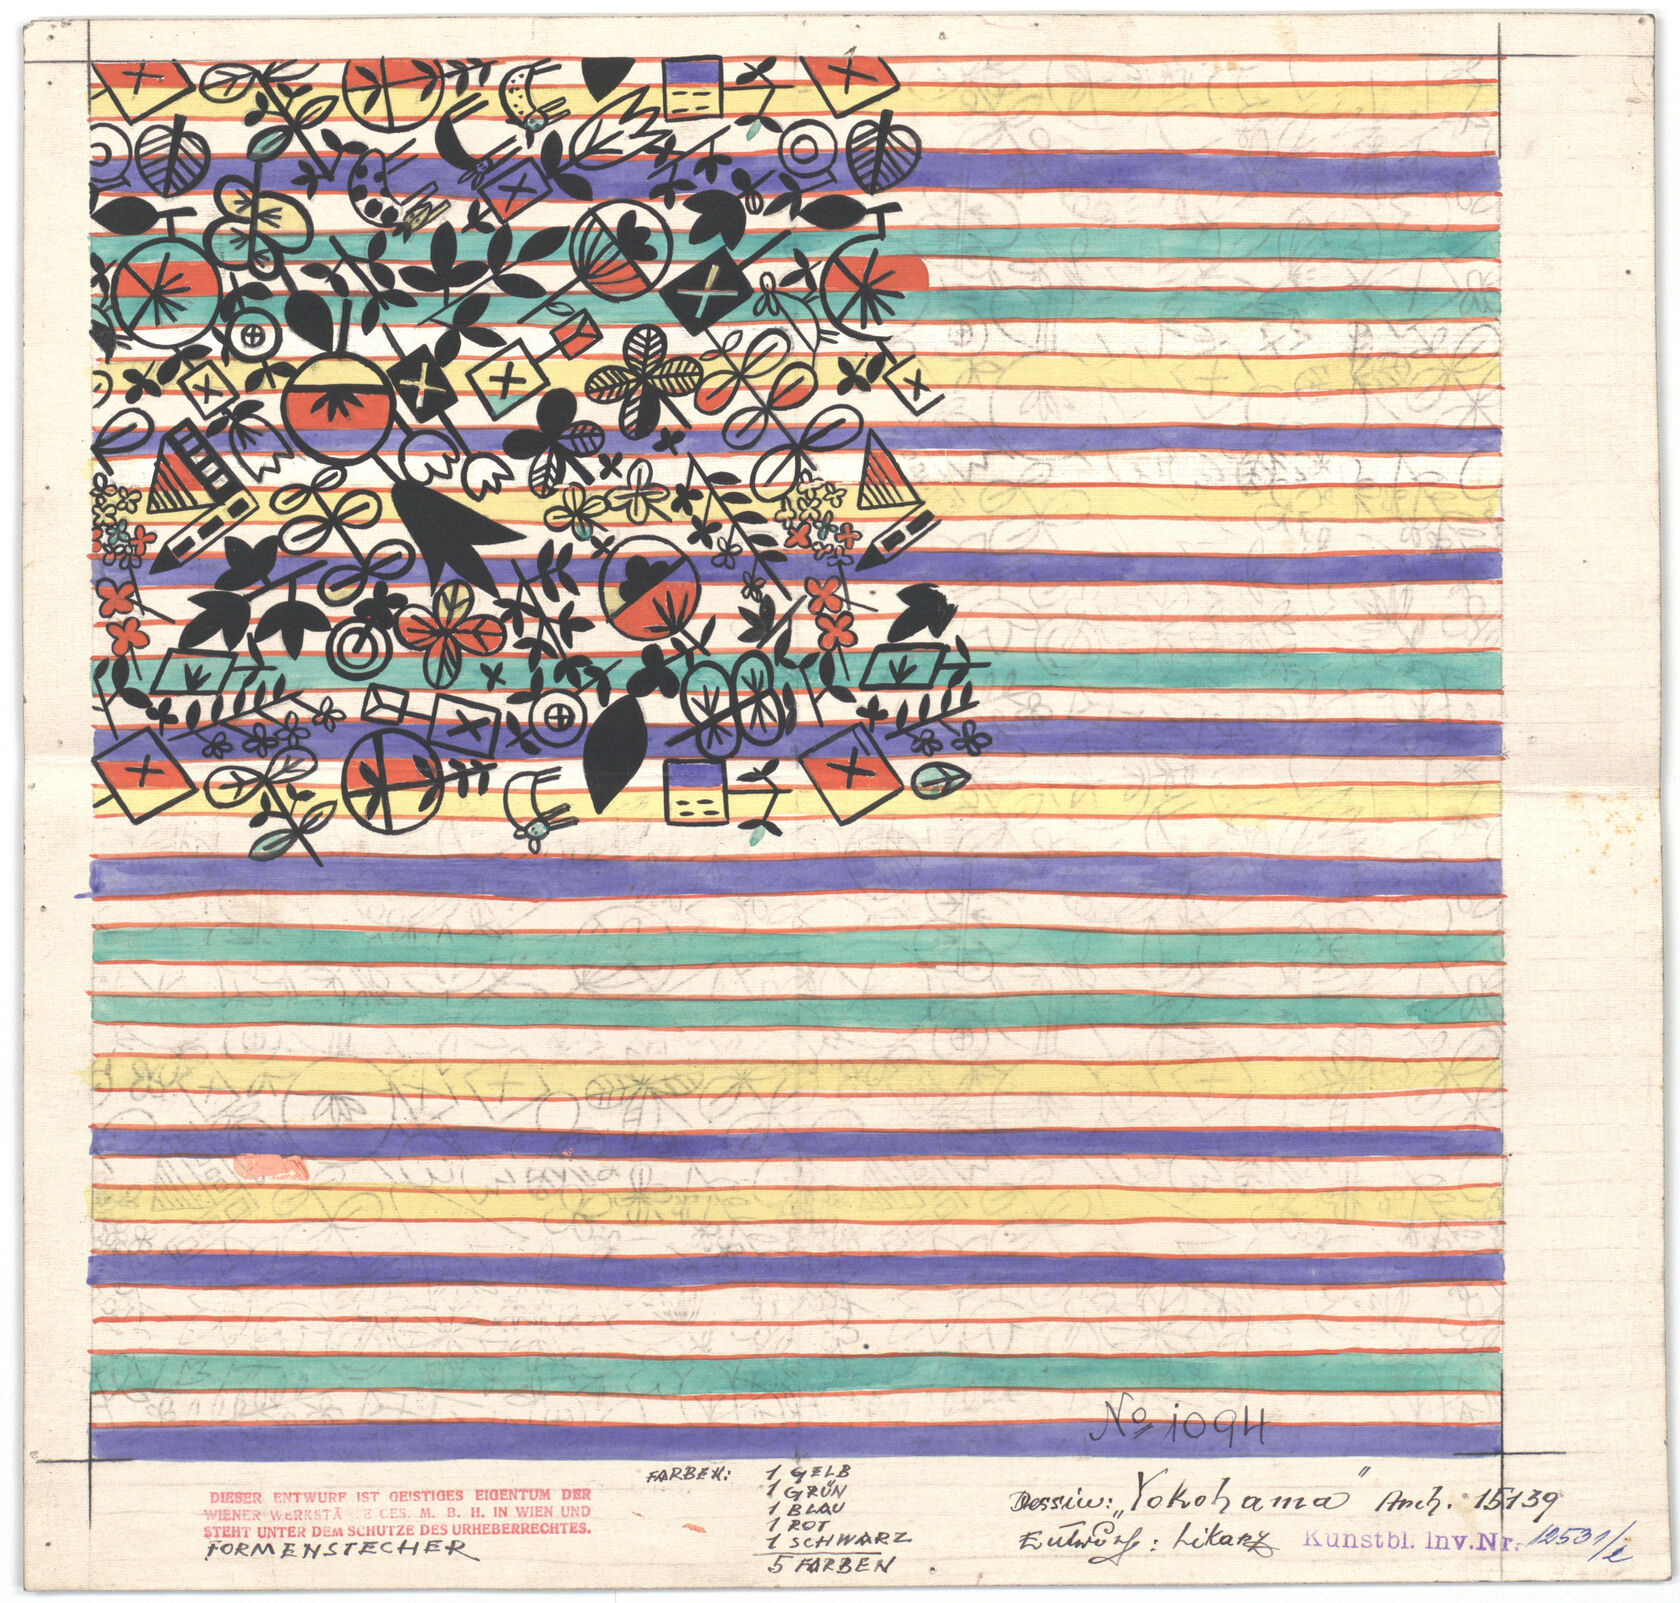 No 1094
DIESER ENTWURF IST GEISTIGES EIGENTUM DER
WIENER WERKSTÄ E GES. M. B. H. IN WIEN UND
STEHT UNTER DEM SCHUTZE DES URHEBERRECHTES.
FORMENSTECHER
FARBEN: 1 GELB
1 GRÜN
1 BLAU
1 ROT
1 SCHWARZ
5 FARBEN
Dessin: „Yokohama" Arch. 15139
Entwurf: Likarz
Kunstbl. Inv. Nr. 12531/